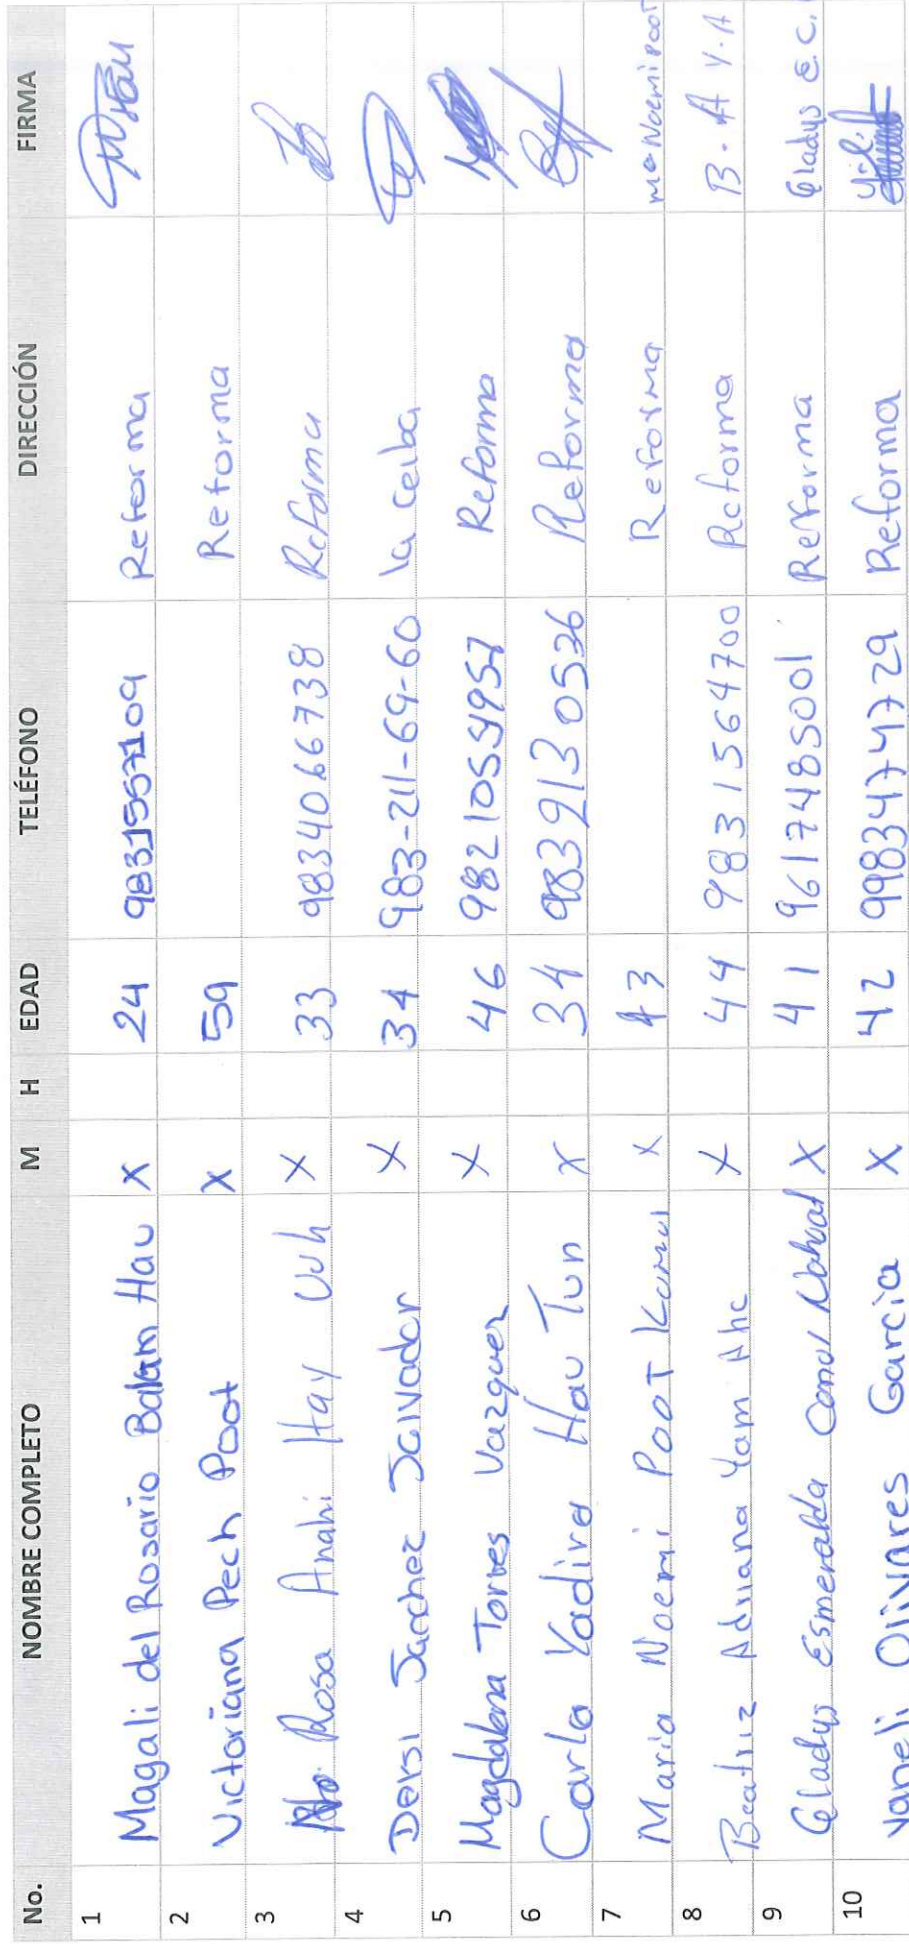 No. NOMBRE COMPLETO M H EDAD TELÉFONO DIRECCIÓN FIRMA
1 Magali del Rosario Balam Hau X 24 9831557109 Reforma
2 Victoriana Pech Poot X 59 Reforma
3 Rosa Anahi Hay Uuh X 33 9834066738 Reforma
4 Deysi Sanchez Salvador X 34 983-211-69-60 la ceiba
5 Magdalena Torres Vazquez X 46 9821054957 Reforma
6 Carla Yadira Hau Tun X 34 9839130536 Reforma
7 Maria Noemi Poot X 43 Reforma Ma Noemi Poot
8 Beatriz Adriana Yam Ake X 44 9831564700 Reforma B.A Y.A
9 Gladys Esmeralda Canul X 41 9617485001 Reforma Gladys E.C.
10 Yaneli Olivares Garcia X 42 9983474729 Reforma